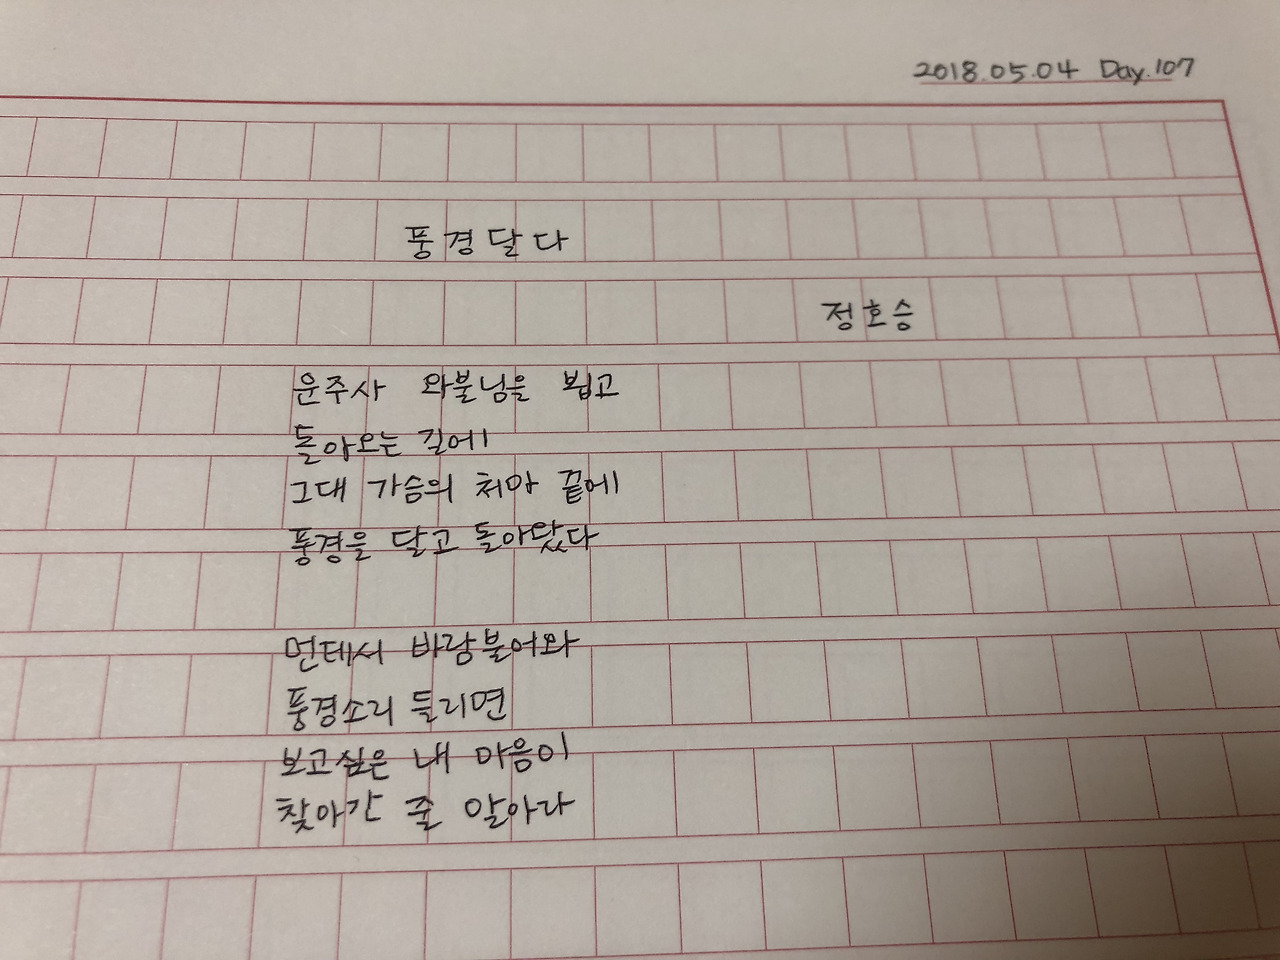 2018.05.04 Day.107
풍경달다
정호승
운주사 와불님을 뵙고
돌아오는 길에
그대 가슴의 처마 끝에
풍경을 달고 돌아왔다
먼데서 바람불어와
풍경소리 들리면
보고싶은 내 마음이
찾아간 줄 알아라